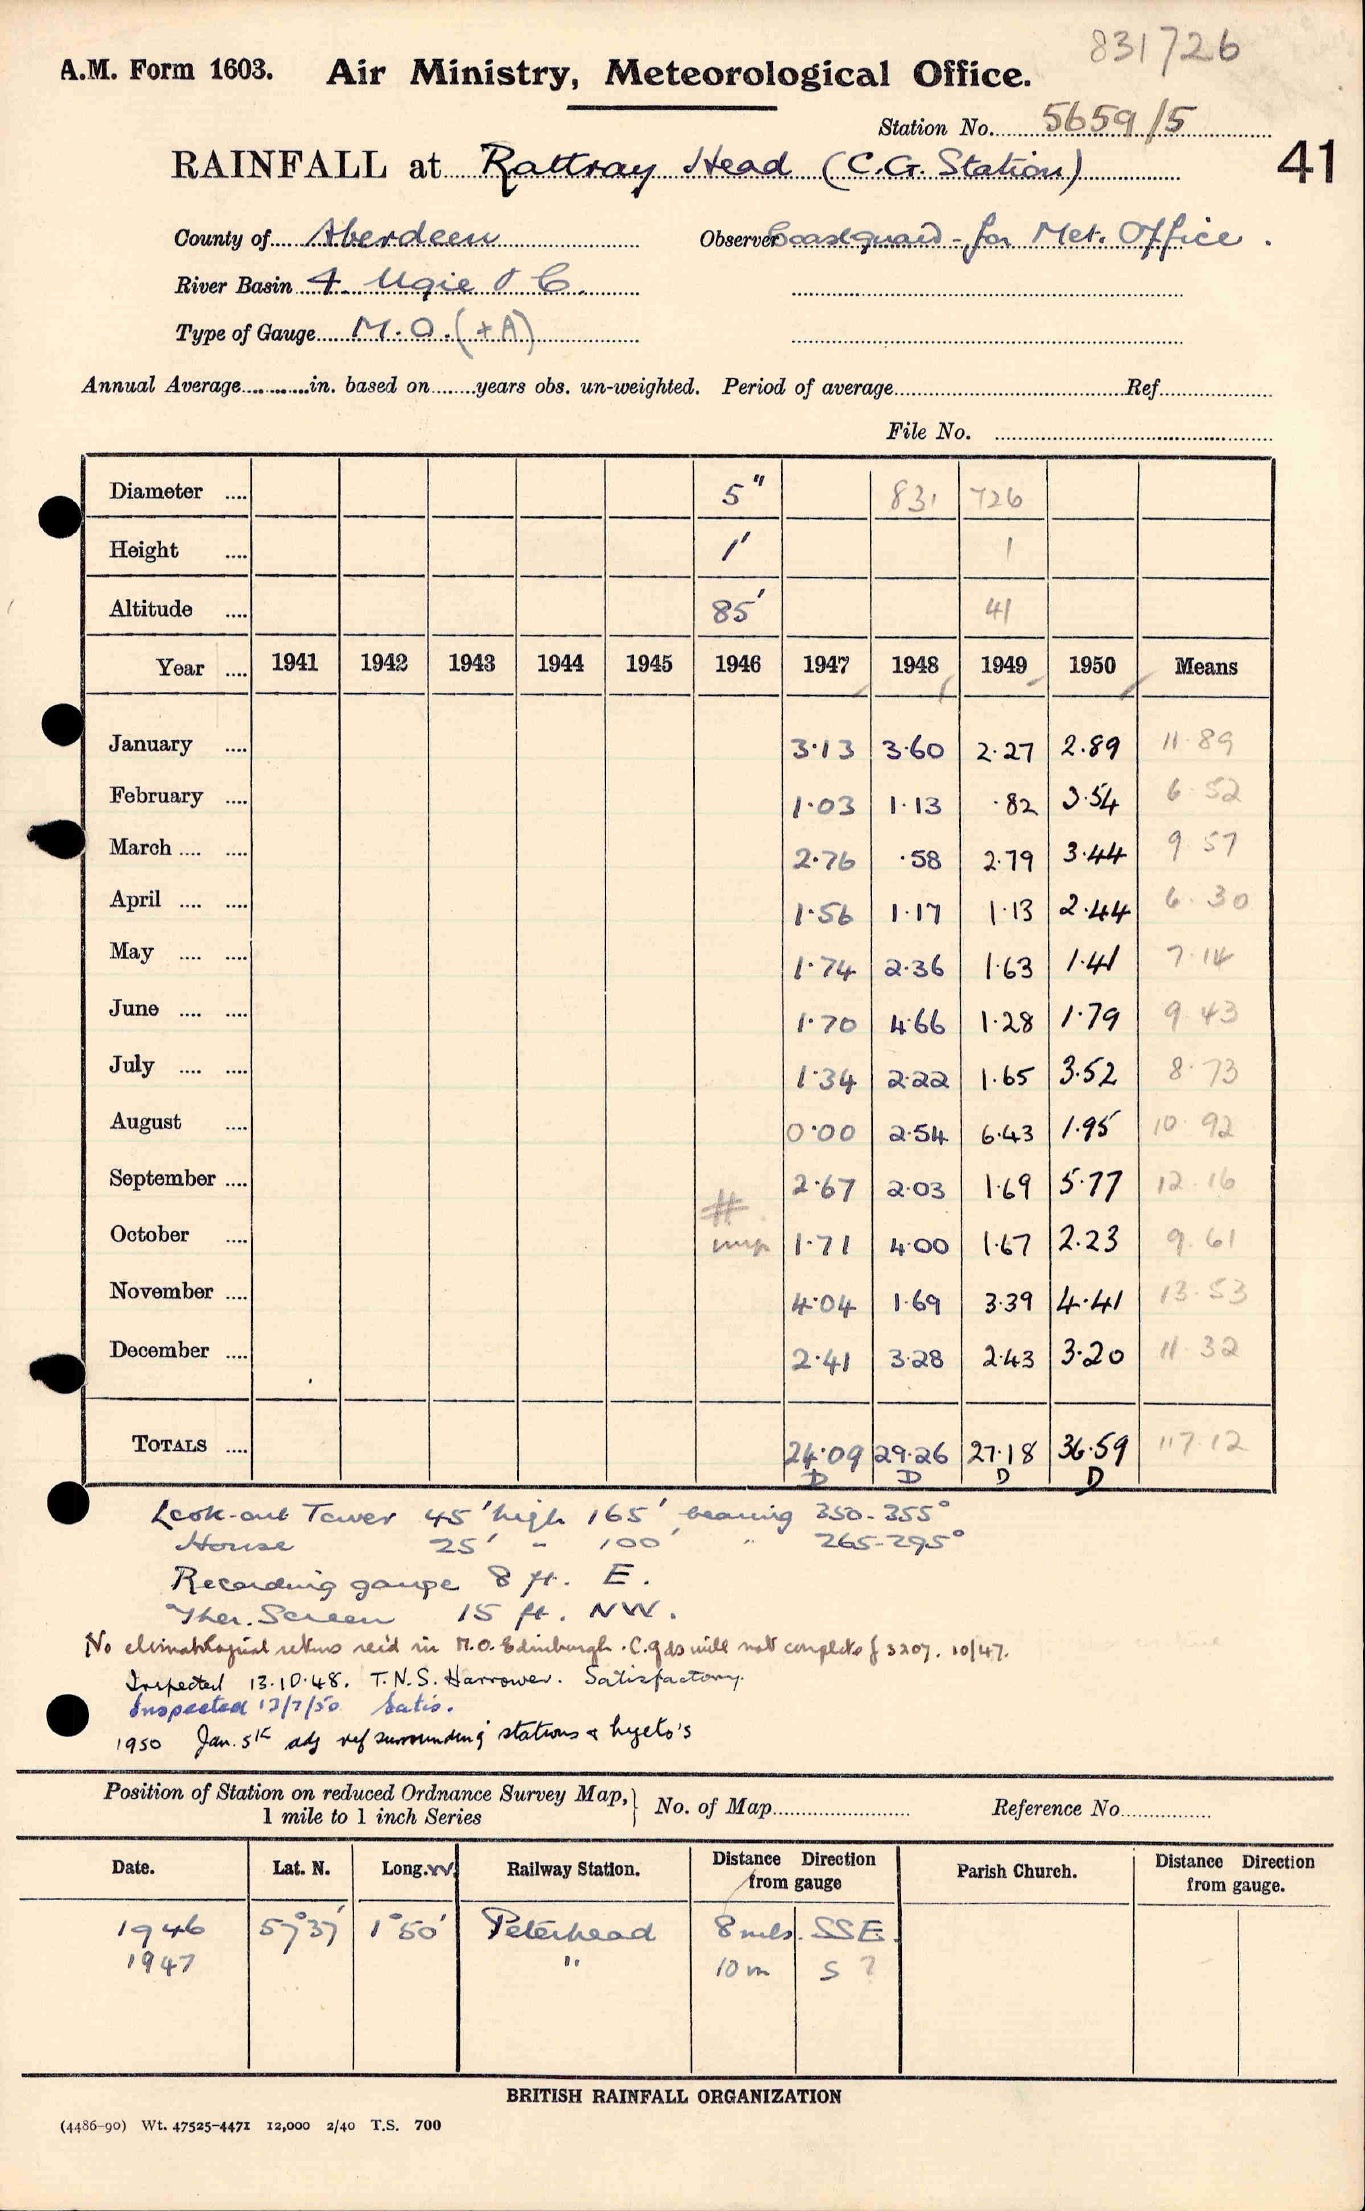 831726
A.M. Form 1603. Air Ministry, Meteorological Office.
Station No. 5659/5
RAINFALL at Rattray Head (C.G. Station) 41
County of Aberdeen Observer Coastguard - for Met. Office.
River Basin 4. Ugie & C.
Type of Gauge M.O. (+A)
Annual Average in. based on years obs. un-weighted. Period of average Ref
File No.
Diameter 5" 831 726
Height 1' 1
Altitude 85' 41
Year 1941 1942 1943 1944 1945 1946 1947 1948 1949 1950 Means
January 3·13 3·60 2·27 2.89 11·89
February 1·03 1·13 ·82 3·54 6·52
March 2·76 ·58 2·79 3·44 9 57
April 1·56 1·17 1·13 2·44 6·30
May 1·74 2·36 1·63 1·41 7·14
June 1·70 4·66 1·28 1·79 9 43
July 1·34 2·22 1·65 3·52 8·73
August 0·00 2·54 6·43 1·95 10 92
September 2·67 2·03 1·69 5·77 12·16
# 
October 1·71 4·00 1·67 2·23 9·61
November 4·04 1·69 3·39 4·41 13·53
December 2·41 3·28 2·43 3·20 11 32
TOTALS 24·09 29·26 27·18 36·59 117·12
D D D D
Look-out Tower 45' high 165' bearing 350-355°
House 25' " 100' " 265-295°
Recording gauge 8 ft. E.
Ther. Screen 15 ft. NW.
No climatological returns rec'd in M.O. Edinburgh. C.gds will not complete f 3207. 10/47.
Inspected 13.10.48. T.N.S. Harrower. Satisfactory.
Inspected 13/7/50 Satis.
1950 Jan. 5th adj ref surrounding stations & hyeto's
Position of Station on reduced Ordnance Survey Map, 1 mile to 1 inch Series } No. of Map Reference No
Date. Lat. N. Long. W. Railway Station. Distance Direction from gauge Parish Church. Distance Direction from gauge.
1946 57°37' 1°50' Peterhead 8 mls. SSE.
1947 " 10 m S ?
BRITISH RAINFALL ORGANIZATION
(4486-90) Wt. 47525-4471 12,000 2/40 T.S. 700